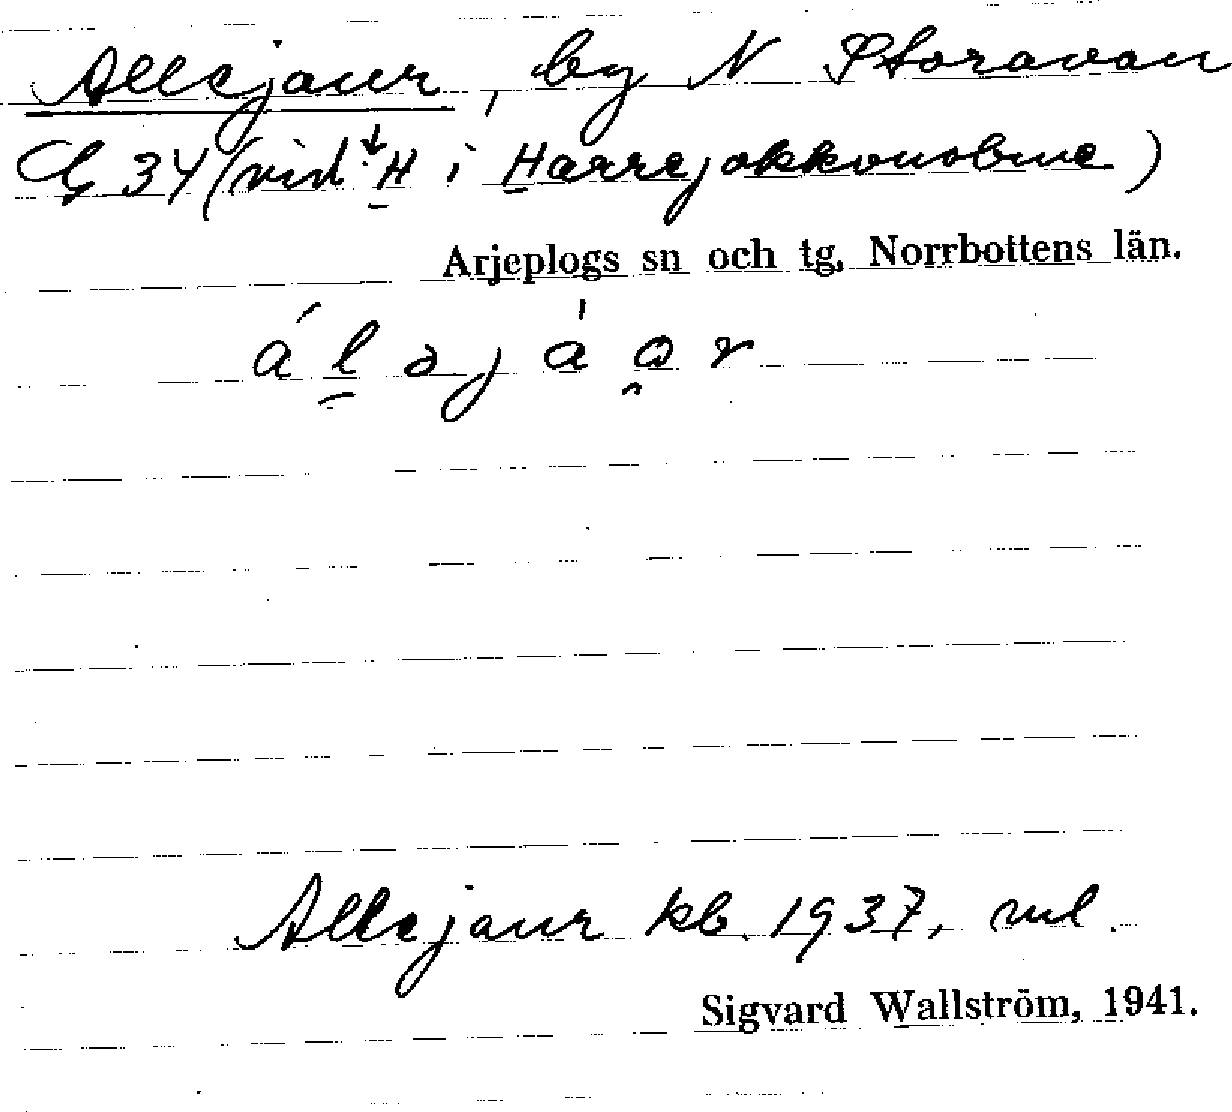 Allejaur, by N Storavan
G 34 (vid ↓ H i Harrejokkonobme)
Arjeplogs sn och tg, Norrbottens län.
á l ə j á o r
Allejaur kb. 1937, ml.
Sigvard Wallström, 1941.